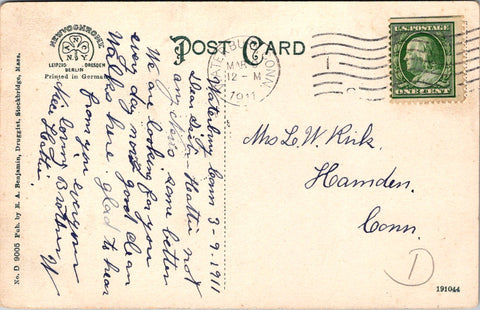 NEWVOCHROME
A N C Y
N.Y.
LEIPZIG DRESDEN
BERLIN
Printed in Germany
POST CARD
WATERBURY, CONN.
MAR
12 - M
1911
U.S. POSTAGE
ONE CENT
Waterbury Conn 3-9-1911
Dear Sister Hattie not
any some better
We are looking for you
every day now good clean
Walks here. glad to hear
from you everyone
Your loving Brother W
Mrs L. W. Kirk.
Hamden.
Conn.
D
No. D 9005 Pub. by R. A. Benjamin, Druggist, Stockbridge, Mass.
191044